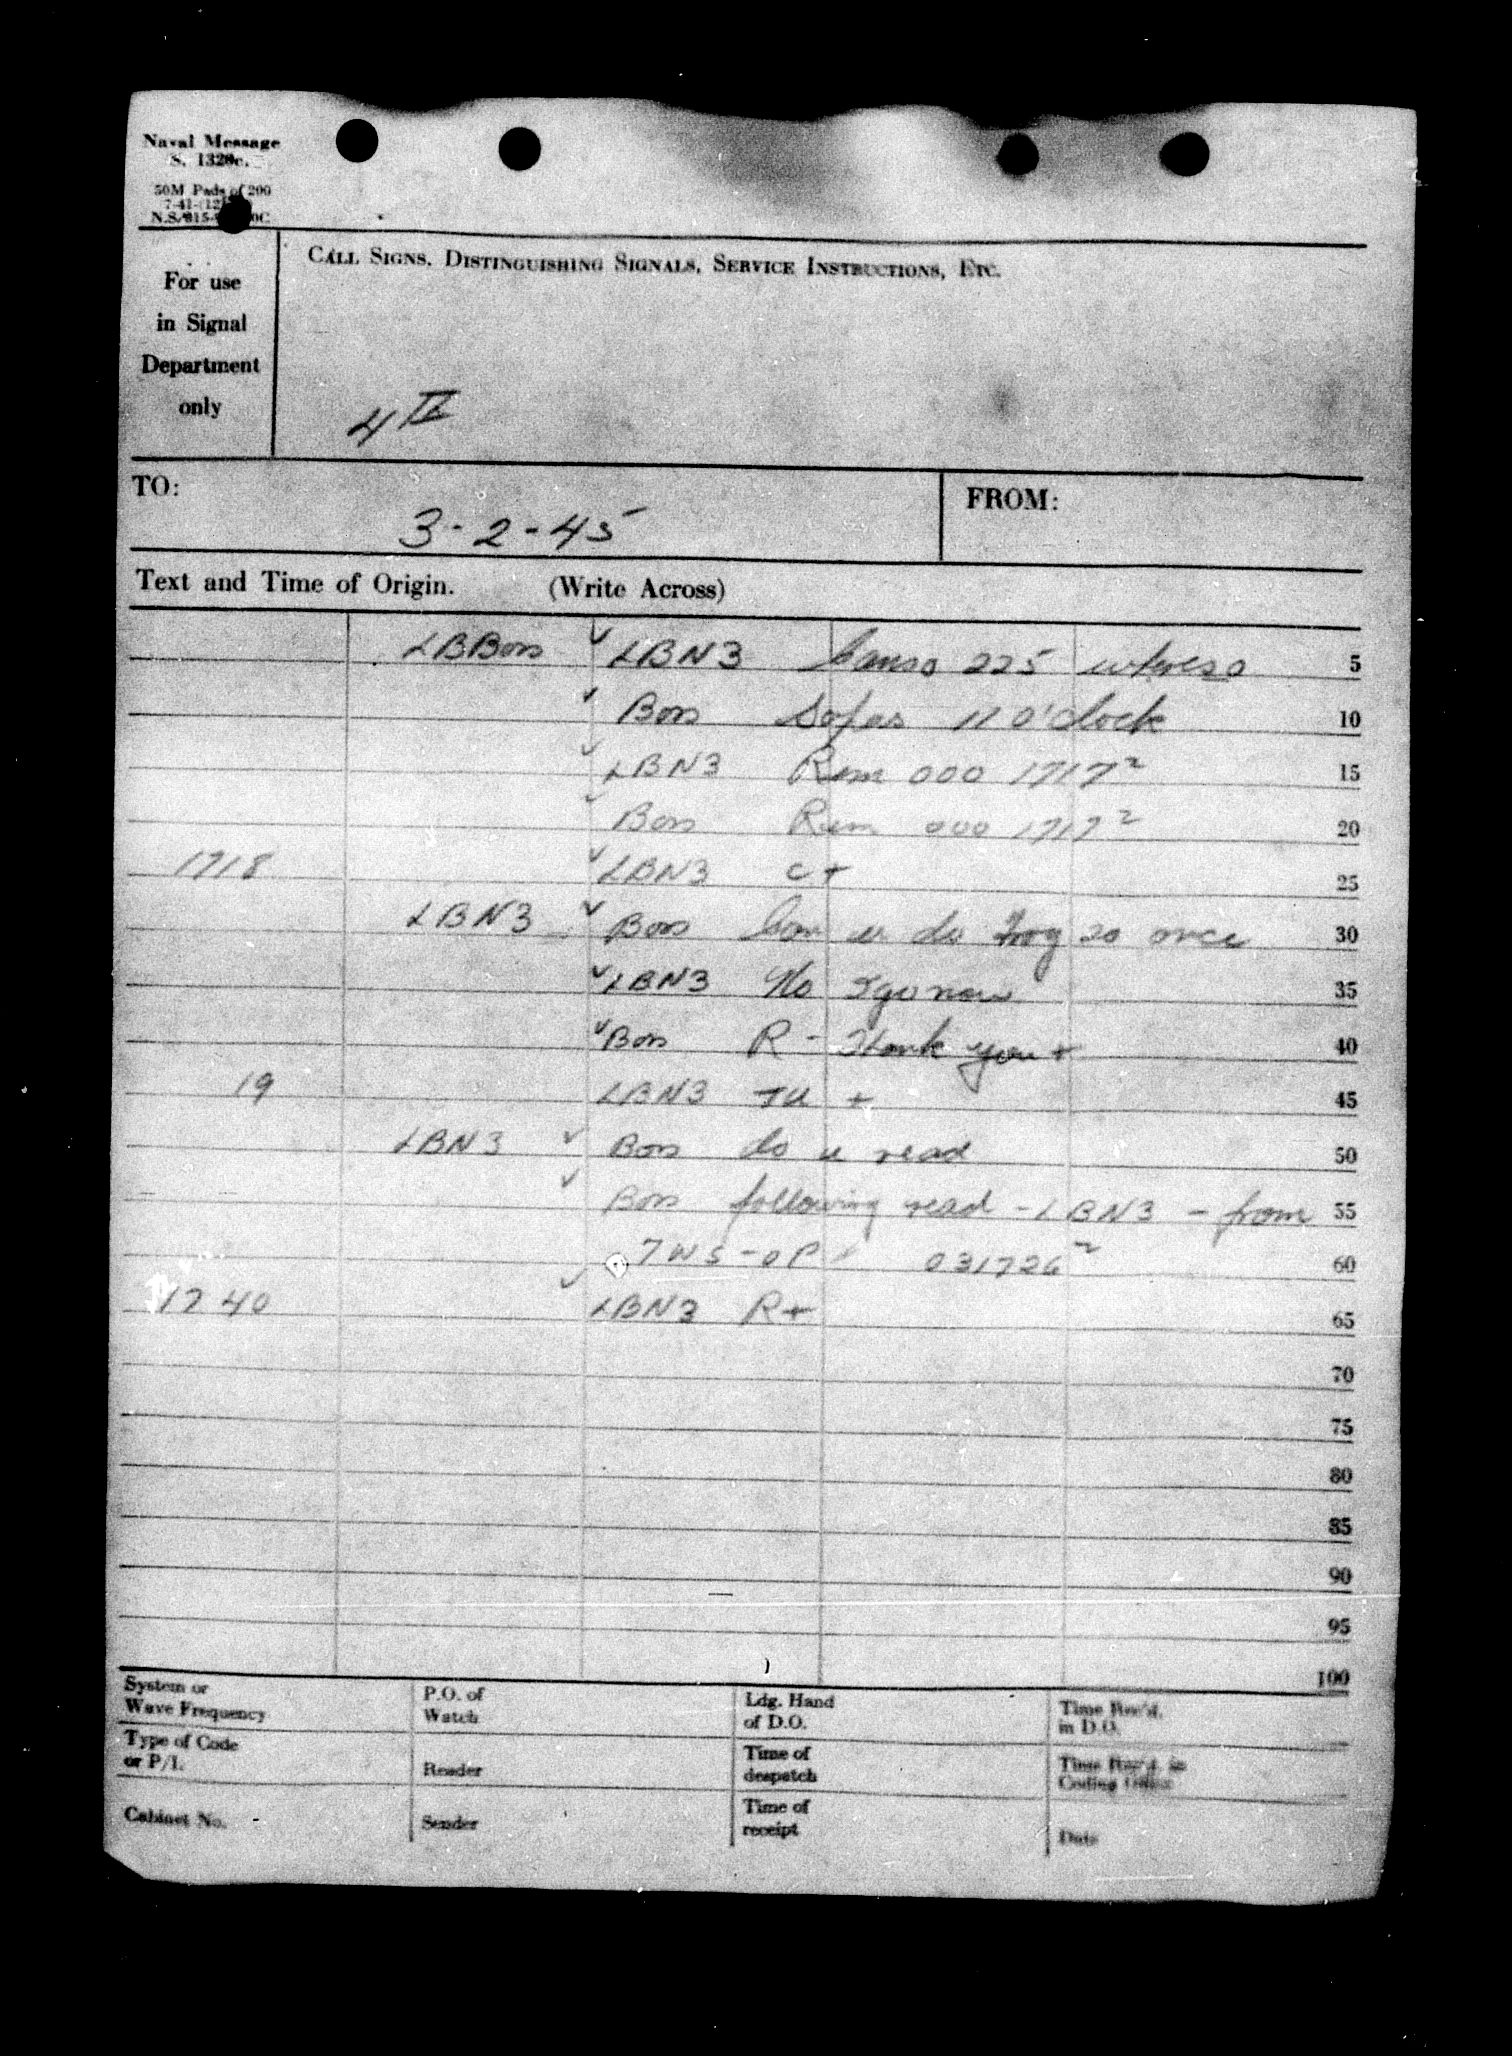 Naval Message
S. 1320c.
50M Pads of 200
7-41-(12
N.S. 815-
For use
in Signal
Department
only
CALL SIGNS, DISTINGUISHING SIGNALS, SERVICE INSTRUCTIONS, ETC.
4
TO:
3-2-45
FROM:
Text and Time of Origin. (Write Across)
LBBon v LBN3 Canso 225 5
v Bon Sofar 11 O'clock 10
v LBN3 Rem 000 1717² 15
v Bon Rem 000 1717² 20
1718 v LBN3 C+ 25
LBN3 v Bon Can u do 20 once 30
v LBN3 No I go now 35
v Bon R - Thank you + 40
19 LBN3 TU + 45
LBN3 v Bon do u read 50
v Bon following read - LBN3 - from 55
7WS-OP 031726² 60
1740 v LBN3 R+ 65
70
75
80
85
90
95
100
System or
Wave Frequency
P.O. of
Watch
Ldg. Hand
of D.O.
Time Rec'd.
in D.O.
Type of Code
or P/L
Reader
Time of
despatch
Time Rec'd. in
Coding Office
Cabinet No.
Sender
Time of
receipt
Date